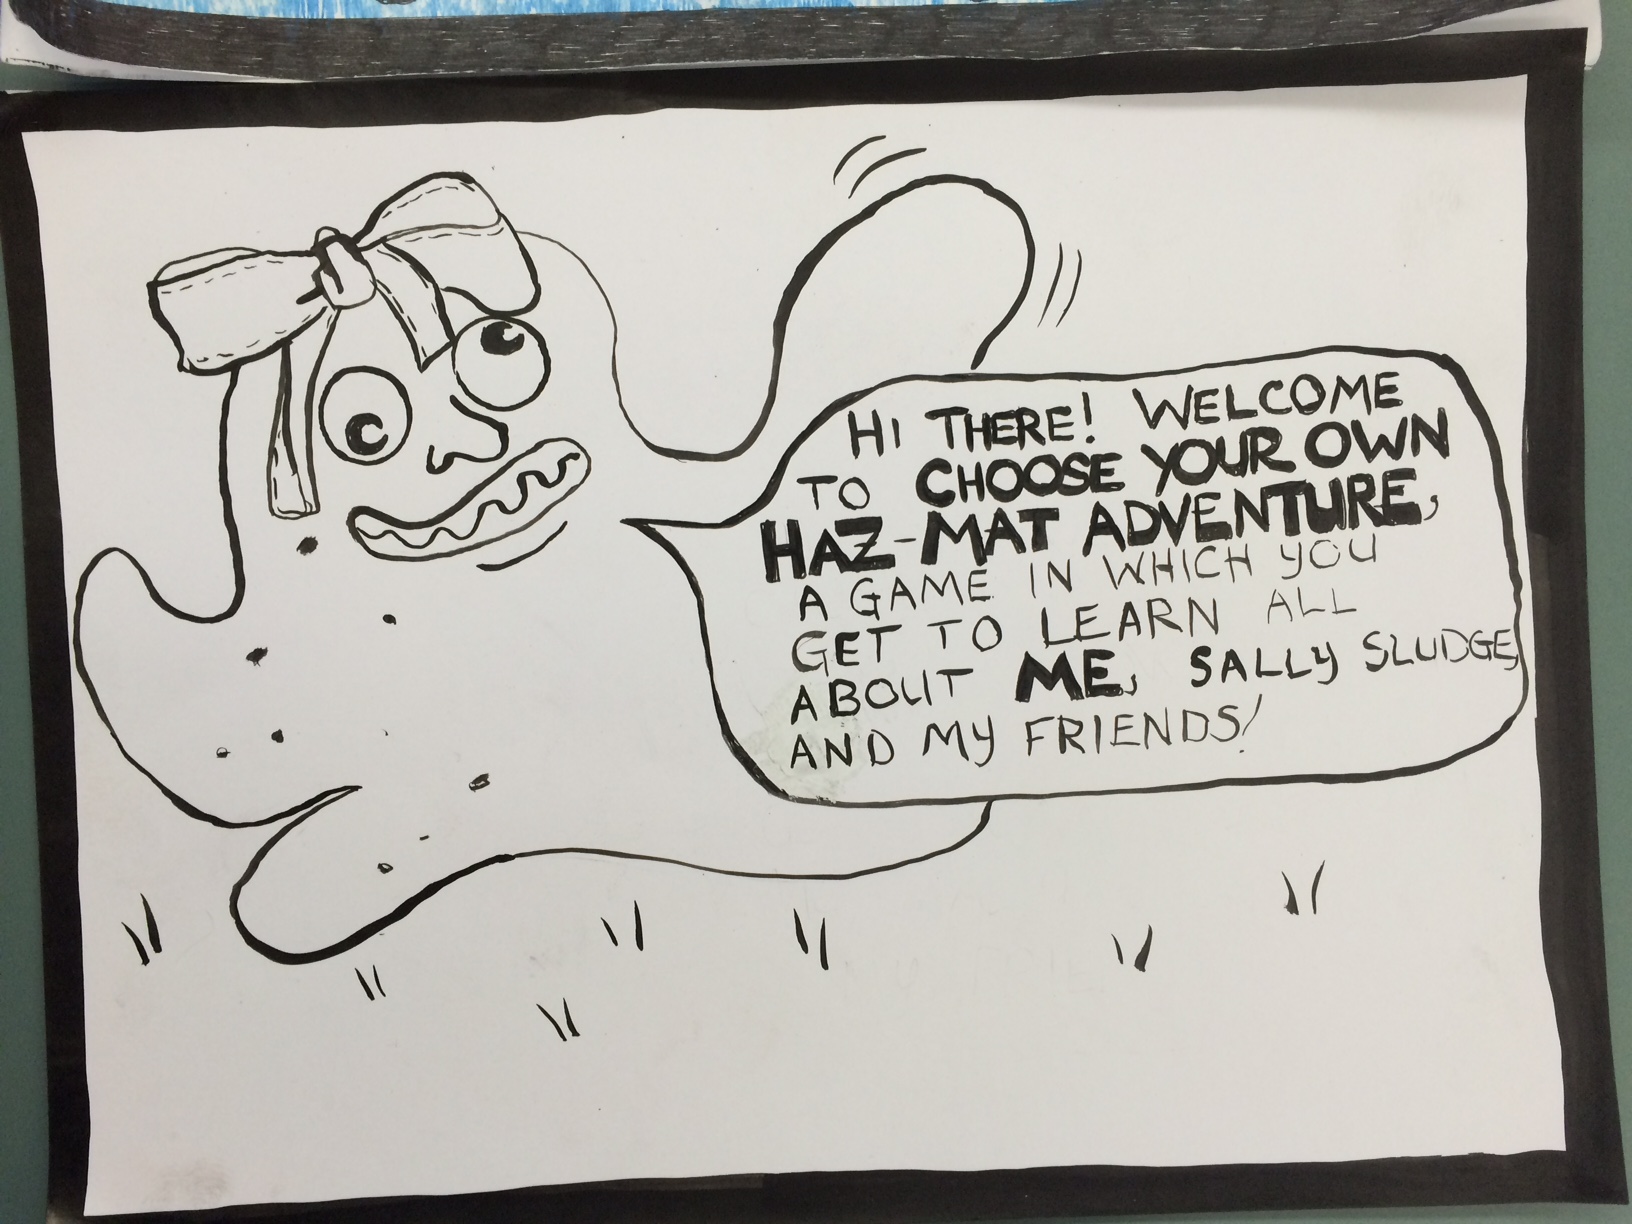 HI THERE! WELCOME
TO CHOOSE YOUR OWN
HAZ-MAT ADVENTURE,
A GAME IN WHICH YOU
GET TO LEARN ALL
ABOUT ME, SALLY SLUDGE,
AND MY FRIENDS!